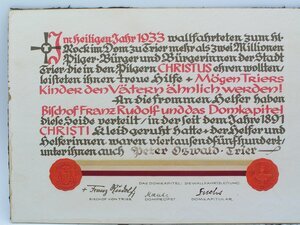 Im heiligen Jahr 1933 wallfahrteten zum hl.
Rock im Dom zu Trier mehr als zwei Millionen
Pilger · Bürger und Bürgerinnen der Stadt
Trier · die in den Pilgern CHRISTUS ehren wollten/
leisteten ihnen treue Hilfe + Mögen Triers
Kinder den Vätern ähnlich werden!
An die frommen Helfer haben
Bischof Franz Rudolf und das Domkapitel
diese Seide verteilt / in der seit dem Jahre 1891
CHRISTI Kleid geruht hatte + der Helfer und
Helferinnen waren viertausendfünfhundert/
unter ihnen auch Peter Oswald · Trier
DAS DOMKAPITEL: DIE WALLFAHRTSLEITUNG
+ Franz Rudolf
BISCHOF VON TRIER DOMPROPST DOMKAPITULAR